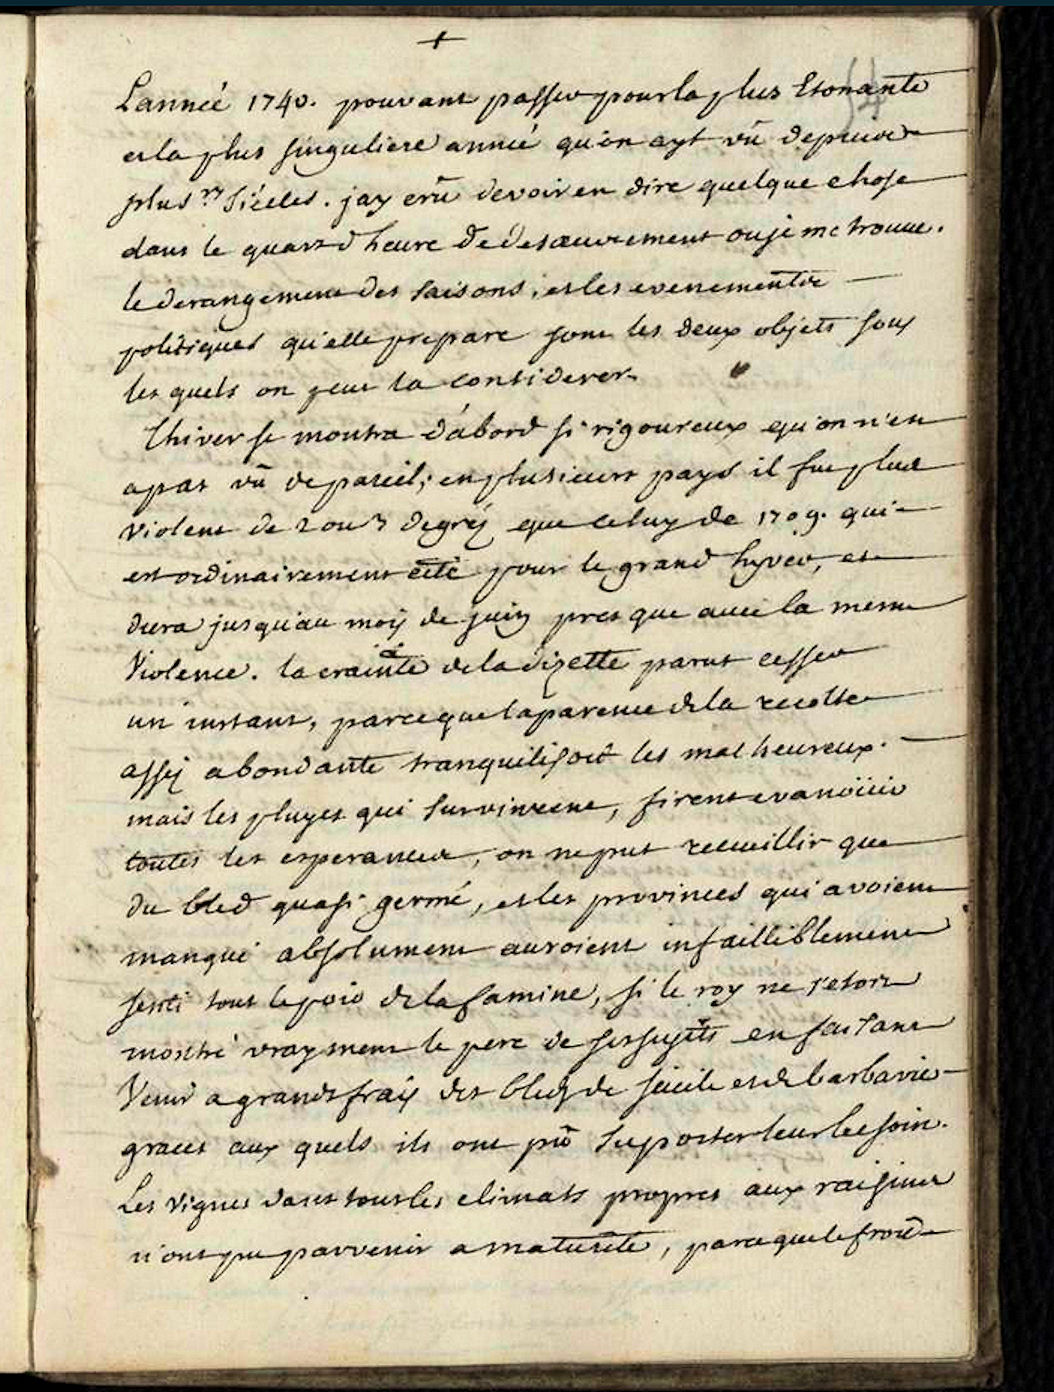 +
Lanneé 1740. pouvant passer pour la plus Etonante
et la plus singuliere anneé qu'on ayt vû depuis
plus.rs siécles. jay crû devoir en dire quelque chose
dans le quart d'heure de desœuvrement ou je me trouve.
le derangement des saisons, et les evenements
politiques qu'elle prepare sont les deux objets sous
les quels on peut la considerer.
lhiver se montra d'abord si rigoureux qu'on n'en
a pas vû de pareil; en plusieurs pays il fut plus
violent de 2 ou 3 degréz que celuy de 1709. qui
est ordinairement cité pour le grand hyver, et
dura jusqu'au mois de juin presque avec la meme
Violence. la crainte de la dizette parut cesser
un instant, parceque laparence de la recolte
assez abondante tranquilisoit les malheureux.
mais les pluyes qui survinrent, firent evanoüir
toutes les esperances, on ne put recueillir que
du bled quasi germé, et les provinces qui avoient
manqué absolument auroient infailliblement
senti tout le poid de la famine, si le roy ne s'etoit
montré vrayment le pere de ses sujets en faisant
Venir a grands frais des bleds de sicile et de barbarie
graces aux quels ils ont pû suporter leur besoin.
Les vignes dans tous les climats propres aux raisins
n'ont pu parvenir a maturité, parceque le froid